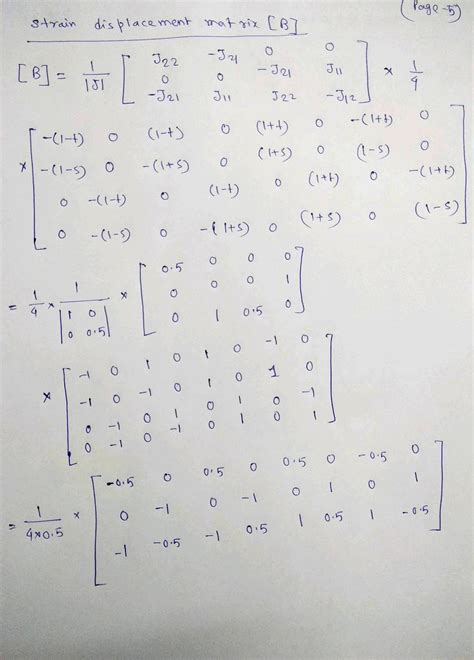 (Page-5)
strain displacement matrix [B]
[B] = 1/|J| [ J22 -J21 0 0
0 0 -J21 J11
-J21 J11 J22 -J12 ] × 1/4
× [ -(1-t) 0 (1-t) 0 (1+t) 0 -(1+t) 0
-(1-s) 0 -(1+s) 0 (1+s) 0 (1-s) 0
0 -(1-t) 0 (1-t) 0 (1+t) 0 -(1+t)
0 -(1-s) 0 -(1+s) 0 (1+s) 0 (1-s) ]
= 1/4 × 1/|1 0
0 0.5| × [ 0.5 0 0 0
0 0 0 1
0 1 0.5 0 ]
× [ -1 0 1 0 1 0 -1 0
-1 0 -1 0 1 0 1 0
0 -1 0 1 0 1 0 -1
0 -1 0 -1 0 1 0 1 ]
= 1/4×0.5 × [ -0.5 0 0.5 0 0.5 0 -0.5 0
0 -1 0 -1 0 1 0 1
-1 -0.5 -1 0.5 1 0.5 1 -0.5 ]